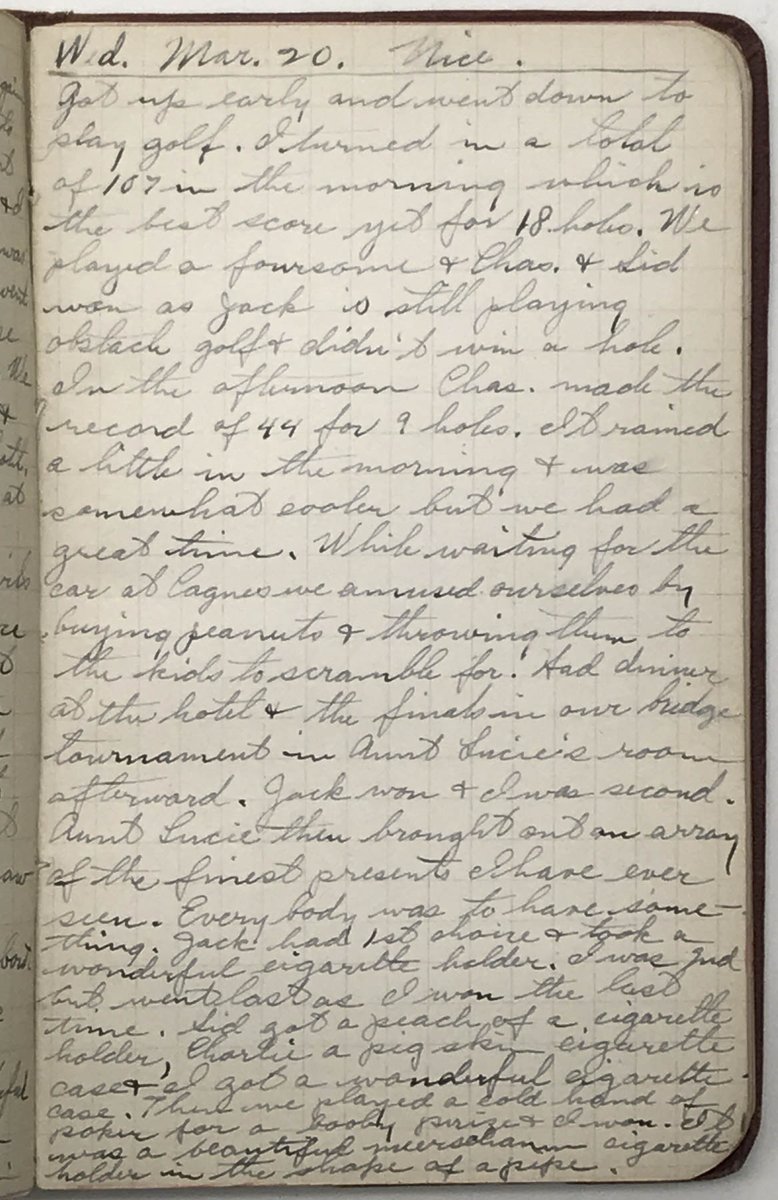 Wed. Mar. 20. Nice.
Got up early and went down to
play golf. I turned in a total
of 107 in the morning which is
the best score yet for 18 holes. We
played a foursome & Chas. & Sid
won as Jack is still playing
obstacle golf & didn't win a hole.
In the afternoon Chas. made the
record of 44 for 9 holes. It rained
a little in the morning & was
somewhat cooler but we had a
great time. While waiting for the
car at Cagnes we amused ourselves by
buying peanuts & throwing them to
the kids to scramble for. Had dinner
at the hotel & the finals in our bridge
tournament in Aunt Lucie's room
afterward. Jack won & I was second.
Aunt Lucie then brought out an array
of the finest presents I have ever
seen. Everybody was to have some-
thing. Jack had 1st choice & took a
wonderful cigarette holder. I was 2nd
but went last as I won the last
time. Sid got a peach of a cigarette
holder, Charlie a pig skin cigarette
case & I got a wonderful cigarette
case. Then we played a cold hand of
poker for a booby prize & I won. It
was a beautiful meerschaum cigarette
holder in the shape of a pipe.